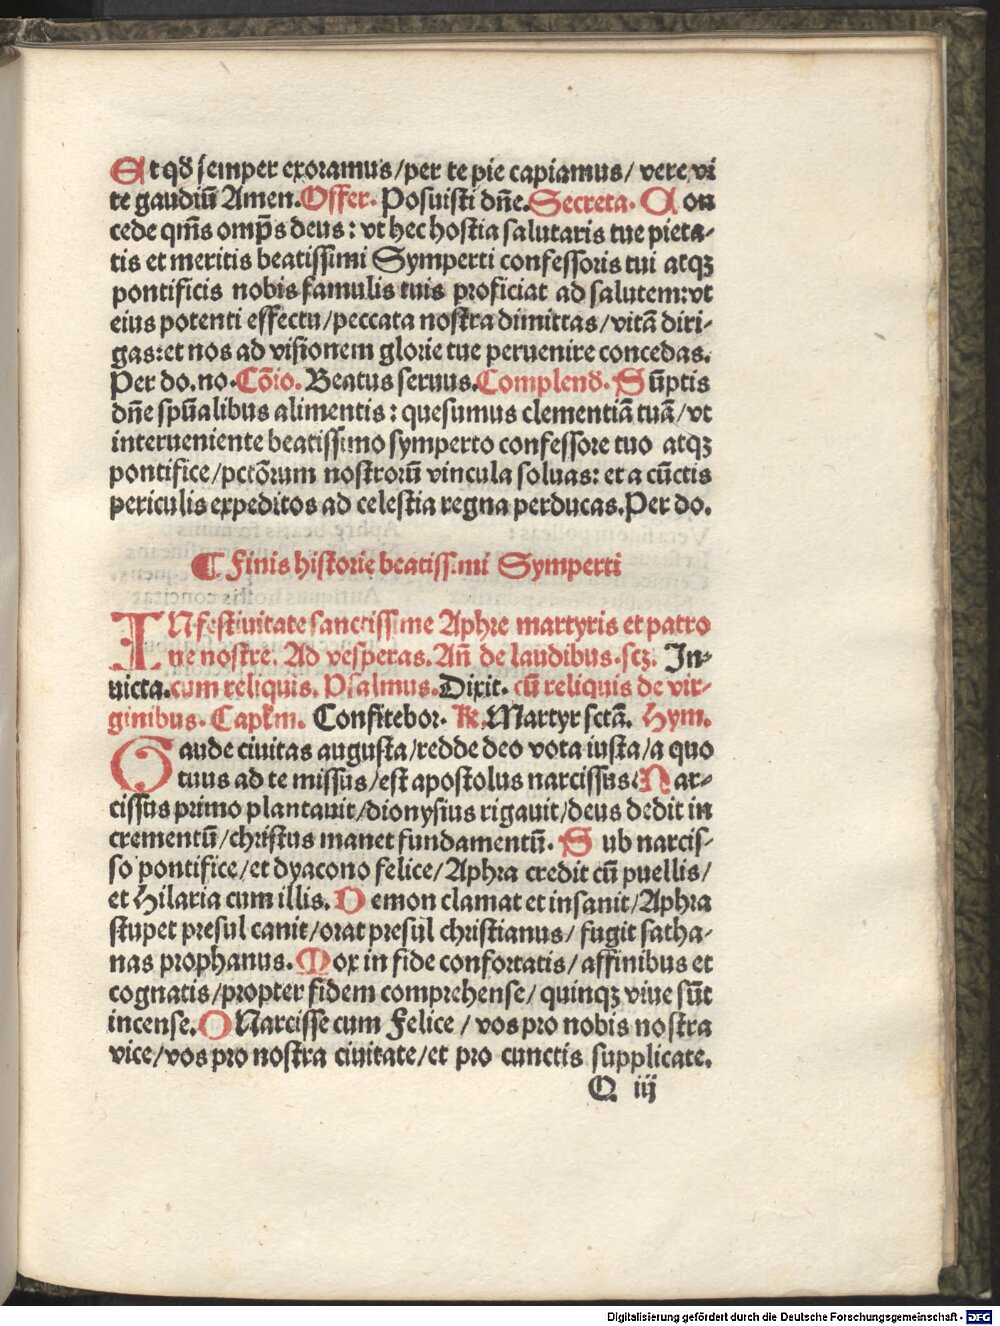 Et qð semper exoramus/per te pie capiamus/ vere vi
te gaudiū Amen. Offer. Posuisti dñe. Secreta. Con
cede qm̄s omp̄s deus: vt hec hostia salutaris tue pieta-
tis et meritis beatissimi Symperti confessoris tui atqȝ
pontificis nobis famulis tuis proficiat ad salutem: vt
eius potenti effectu/peccata nostra dimittas/vitā diri-
gas: et nos ad visionem glorie tue peruenire concedas.
Per do. no. Cōio. Beatus seruus. Complenð. Sūptis
dñe spūalibus alimentis: quesumus clementiā tuā/vt
interueniente beatissimo symperto confessore tuo atqȝ
pontifice/pctōrum nostrorū vincula soluas: et a cūctis
periculis expeditos ad celestia regna perducas. Per do.
¶ Finis historię beatissimi Symperti
IN festiuitate sanctissime Aphre martyris et patro
ne nostre. Ad vesperas. Añ de laudibus. scȝ. In-
uicta. cum reliquis. Psalmus. Dixit. cū reliquis de vir-
ginibus. Caplm. Confitebor. ℟. Martyr sctā. Hym.
Gaude ciuitas augusta/redde deo vota iusta/a quo
tuus ad te missus/est apostolus narcissus. Nar-
cissus primo plantauit/dionysius rigauit/deus dedit in
crementū/christus manet fundamentū. Sub narcis-
so pontifice/et dyacono felice/Aphra credit cū puellis/
et Hilaria cum illis. Demon clamat et insanit/Aphra
stupet presul canit/orat presul christianus/ fugit satha-
nas prophanus. Mox in fide confortatis/ affinibus et
cognatis/propter fidem comprehense/ quinqȝ viue sūt
incense. O Narcisse cum Felice / vos pro nobis nostra
vice/vos pro nostra ciuitate/et pro cunctis supplicate.
Q iij
Digitalisierung gefördert durch die Deutsche Forschungsgemeinschaft - DFG